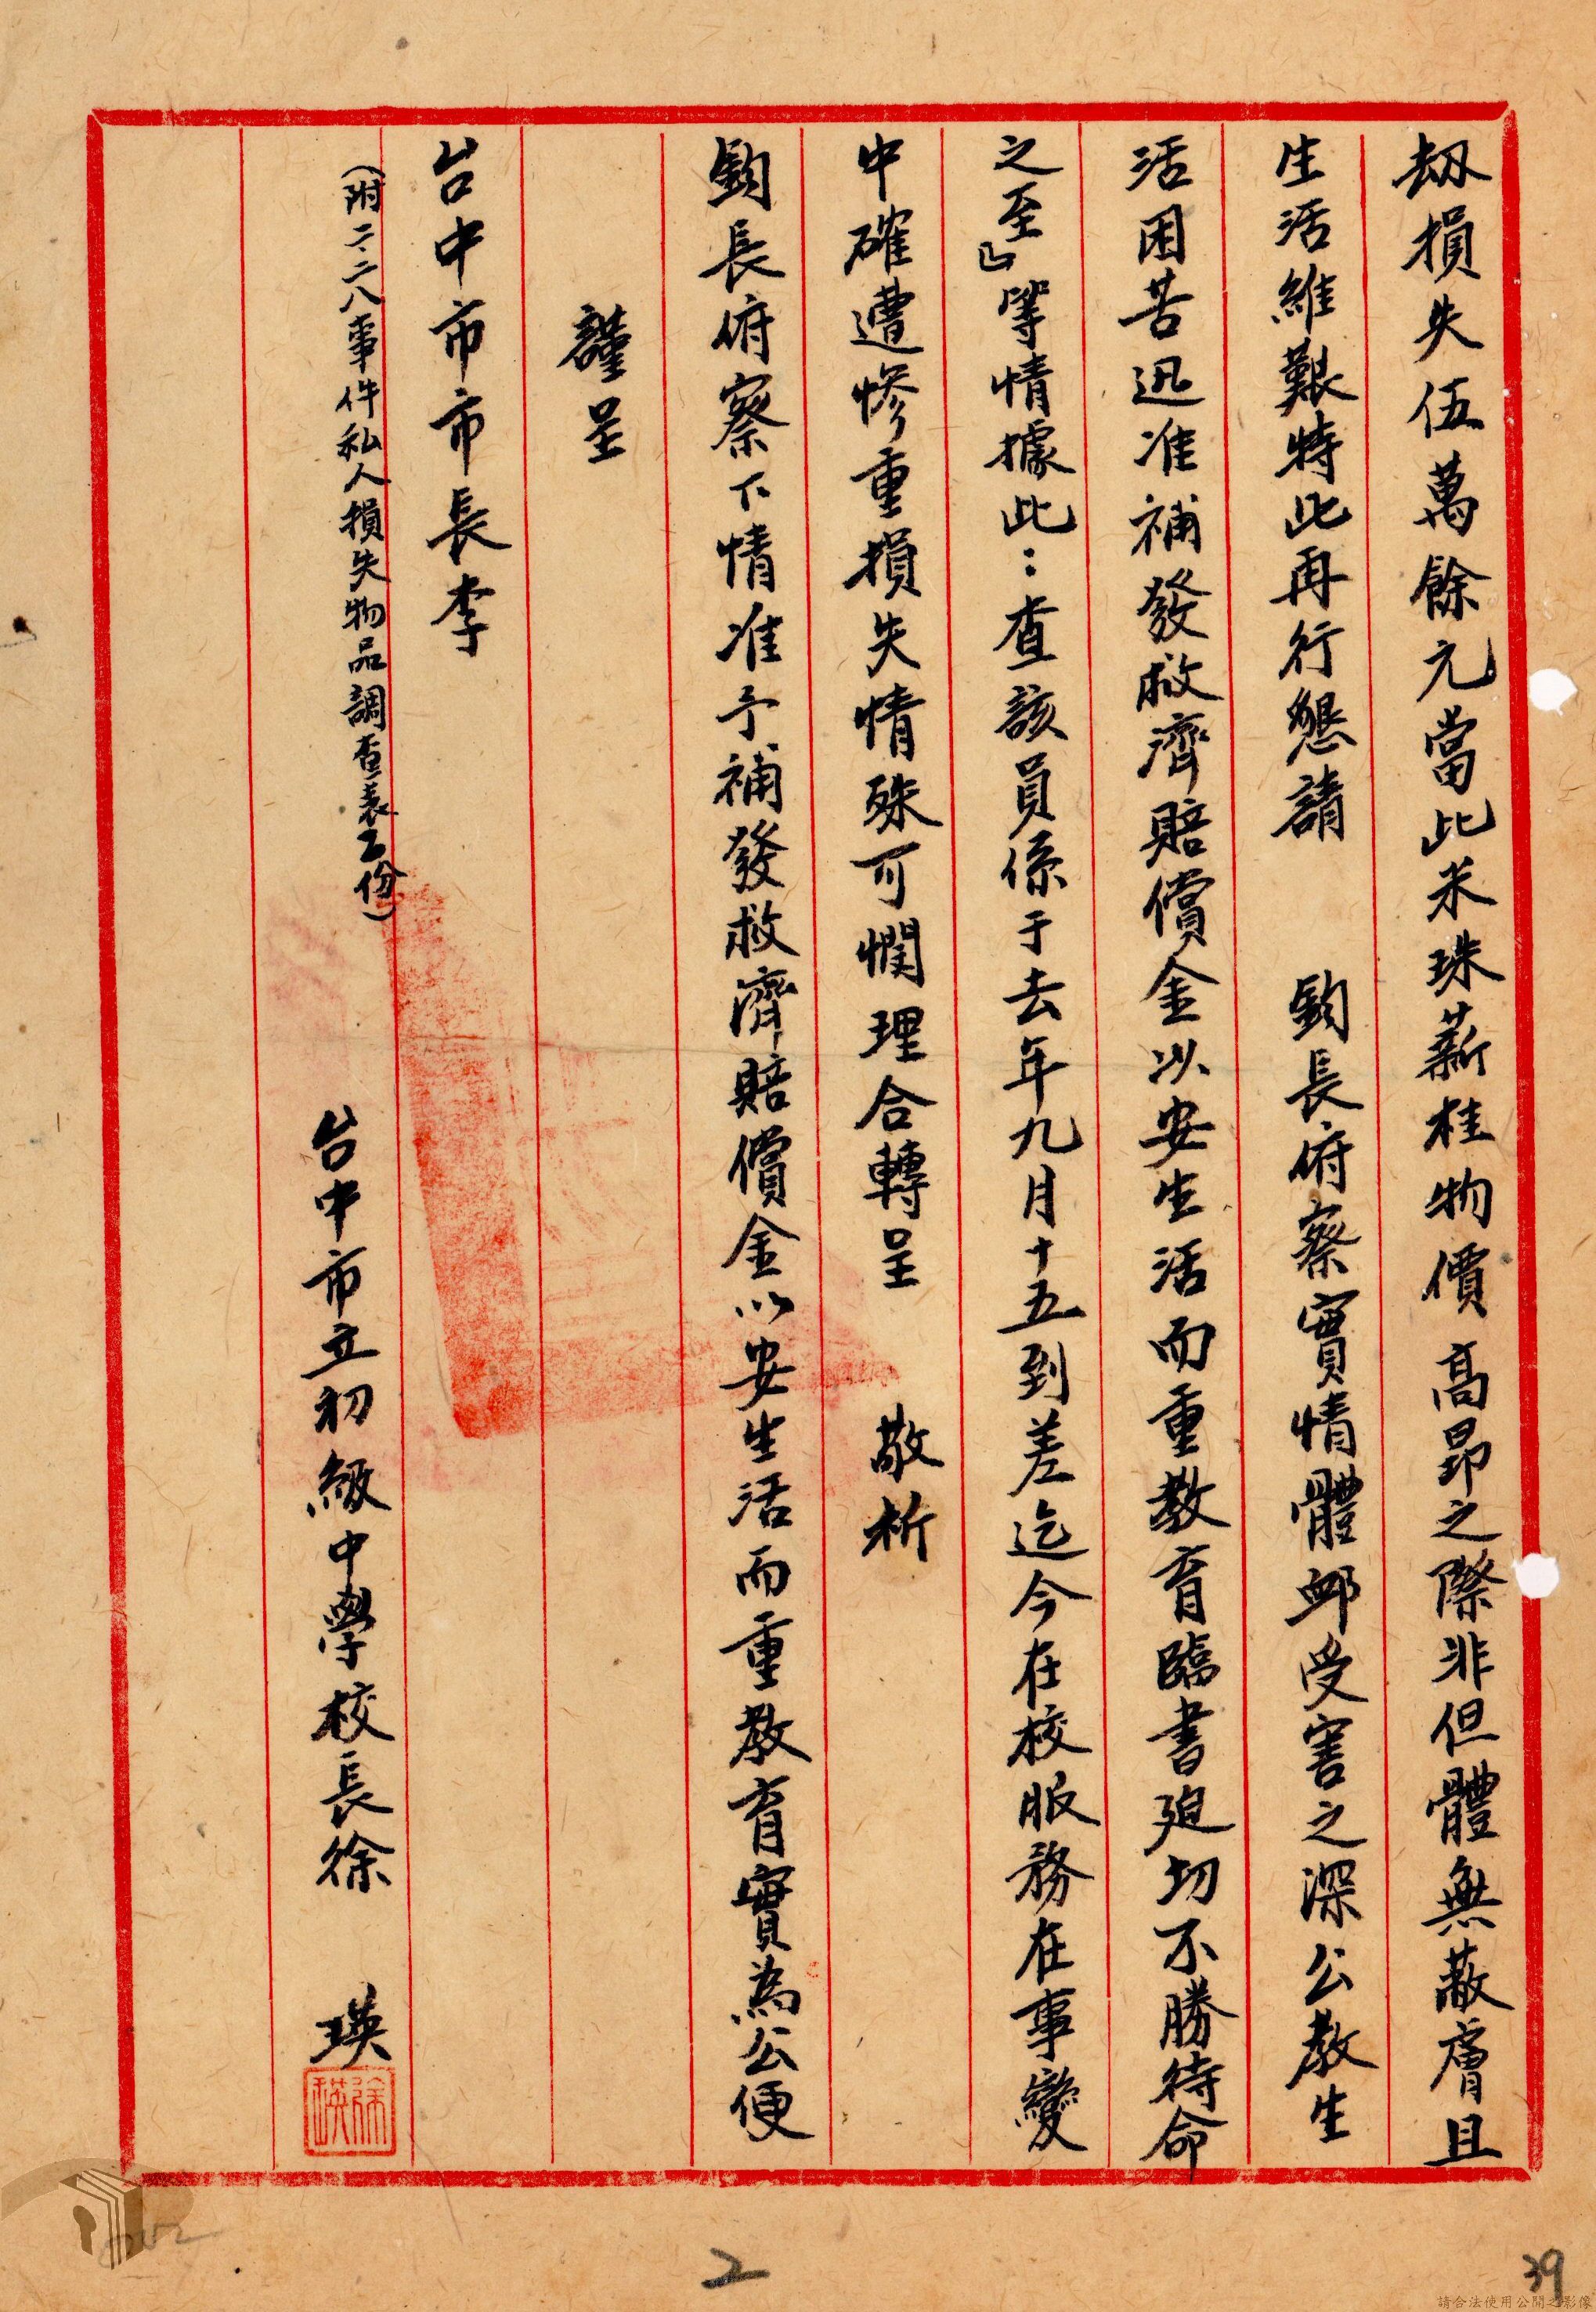 刼損失伍萬餘元當此米珠薪桂物價高昂之際非但體無蔽膚且
生活維艱特此再行懇請　鈞長俯察實情體卹受害之深公教生
活困苦迅准補發救濟賠償金以安生活而重教育臨書廹切不勝待命
之至」等情據此：查該員係于去年九月十五到差迄今在校服務在事變
中確遭慘重損失情殊可憫理合轉呈　敬祈
鈞長俯察下情准予補發救濟賠償金以安生活而重教育實為公便
謹呈
台中市市長李
（附二.二八事件私人損失物品調查表乙份）
台中市立初級中學校長徐　瑛
徐瑛
2
39
請合法使用公開之影像